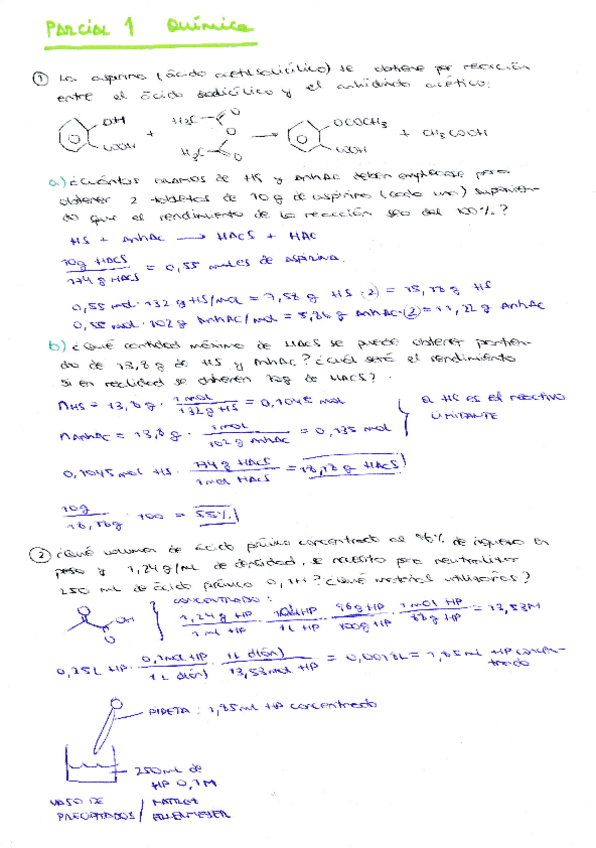 PARCIAL 1 QUÍMICA
① La aspirina (ácido acetilsalicílico) se obtiene por reacción
entre el ácido salicílico y el anhídrido acético:
OH
COOH
+
H₃C
O
O
H₃C
O
→
OCOCH₃
COOH
+ CH₃COOH
a) ¿Cuántos gramos de HS y AnhAc deben emplearse para
obtener 2 tabletas de 10g de aspirina (cada una) suponien-
do que el rendimiento de la reacción sea del 100%?
HS + AnhAc → HACS + HAC
10g HACS
174 g HACS
= 0,55 moles de aspirina.
0,55 mol · 132 g HS/mol = 7,58 g HS ·(2) = 15,18 g HS
0,55 mol · 102 g AnhAc/mol = 5,86 g AnhAc·(2) = 11,22 g AnhAc
b) ¿Qué cantidad máxima de HACS se puede obtener partien-
do de 13,8g de HS y AnhAc? ¿Cuál será el rendimiento
si en realidad se obtienen 10g de HACS?
nHS = 13,8g · 1 mol / 132g HS = 0,1045 mol
El HS es el reactivo
LIMITANTE
nAnhAc = 13,8g · 1 mol / 102 g AnhAc = 0,135 mol
0,1045 mol HS · 174 g HACS / 1 mol HACS = 18,18 g HACS
10g / 18,18g · 100 = 55%
② ¿Qué volumen de ácido concentrado al 96% de riqueza en
peso y 1,24 g/mL de densidad, se necesita para neutralizar
250 mL de ácido 0,1M? ¿Qué material utilizarías?
OH
O
CONCENTRADO:
1,24g HP / 1 mL HP · HP / 1L HP · 96g HP / 100g HP · 1 mol HP / HP = 13,53M
0,25L HP · 0,1 mol HP / 1L dión · 1L dión / 13,53 mol HP = 0,0018L = 1,85 mL HP concen-
trado
PIPETA: 1,85 mL HP concentrado
250 mL de
HP 0,1M
VASO DE / MATRAZ
PRECIPITADOS / ERLENMEYER